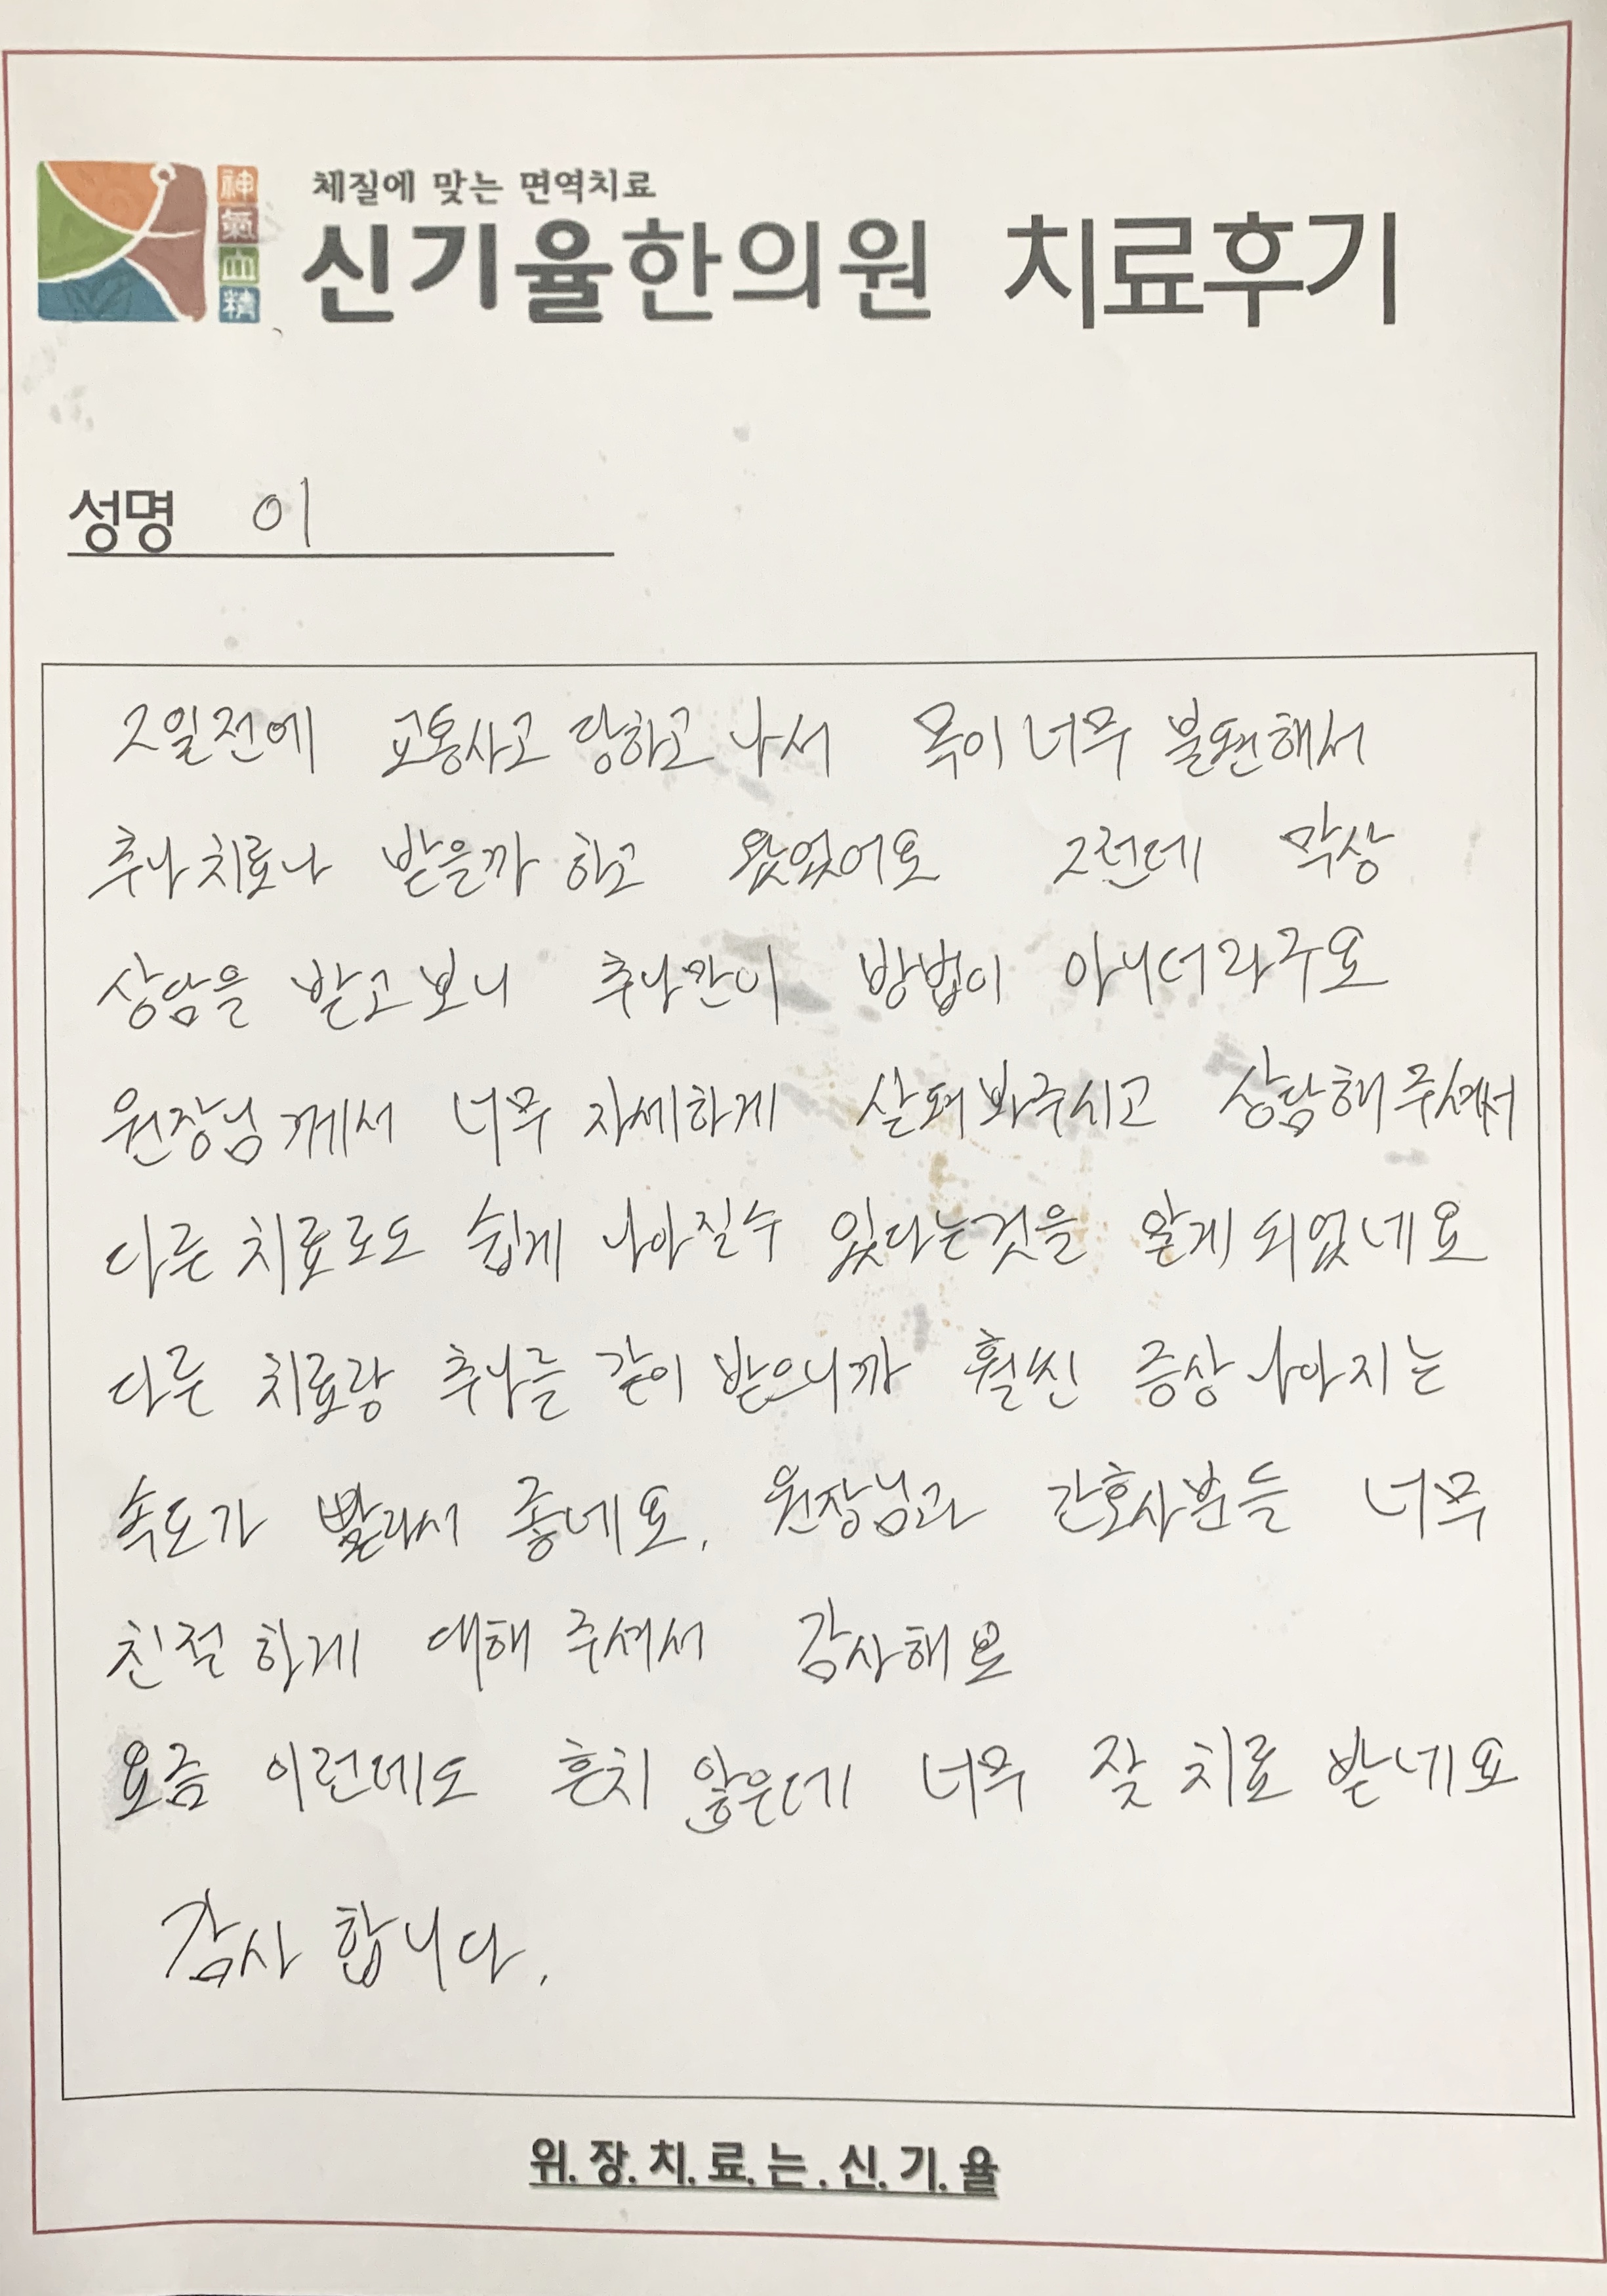 神
氣
血
精
체질에 맞는 면역치료
신기율한의원 치료후기
성명 이
2일전에 교통사고 당하고 나서 목이 너무 불편해서
추나치료나 받을까 하고 왔었어요 그런데 막상
상담을 받고보니 추나만이 방법이 아니더라구요
원장님께서 너무 자세하게 살펴봐주시고 상담해주셔서
다른 치료로도 쉽게 나아질수 있다는것을 알게 되었네요
다른 치료랑 추나를 같이 받으니까 훨씬 증상 나아지는
속도가 빨라서 좋네요. 원장님과 간호사분들 너무
친절하게 대해 주셔서 감사해요
요즘 이런데도 흔치 않은데 너무 잘 치료 받네요
감사 합니다.
위.장.치.료.는.신.기.율